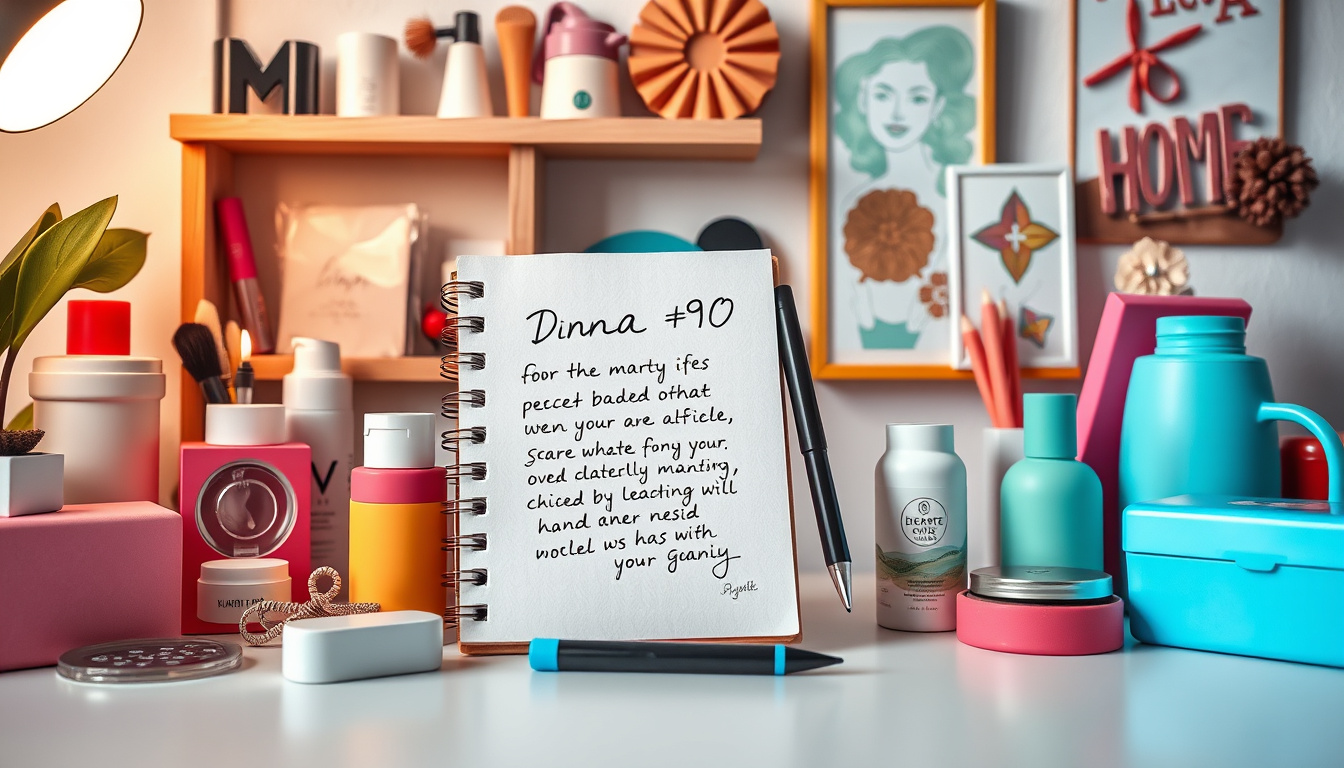 M
LeCA
HOME
Dinna #90
foor the marty ifes
peccet baded othat
wen your are afficle,
scare whate fony your.
oved claterlly mantirg,
chiced by leacting will
hand aner nesid
woclel ws has with
your Gcaniy
V